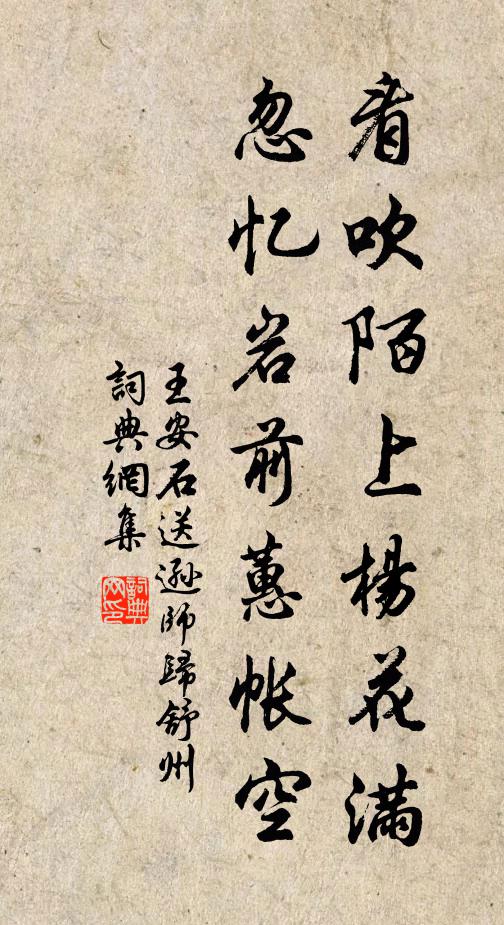 看吹陌上楊花滿
忽忆岩前蕙帐空
王安石送逊師歸舒州
詞典網集
詞典
网印